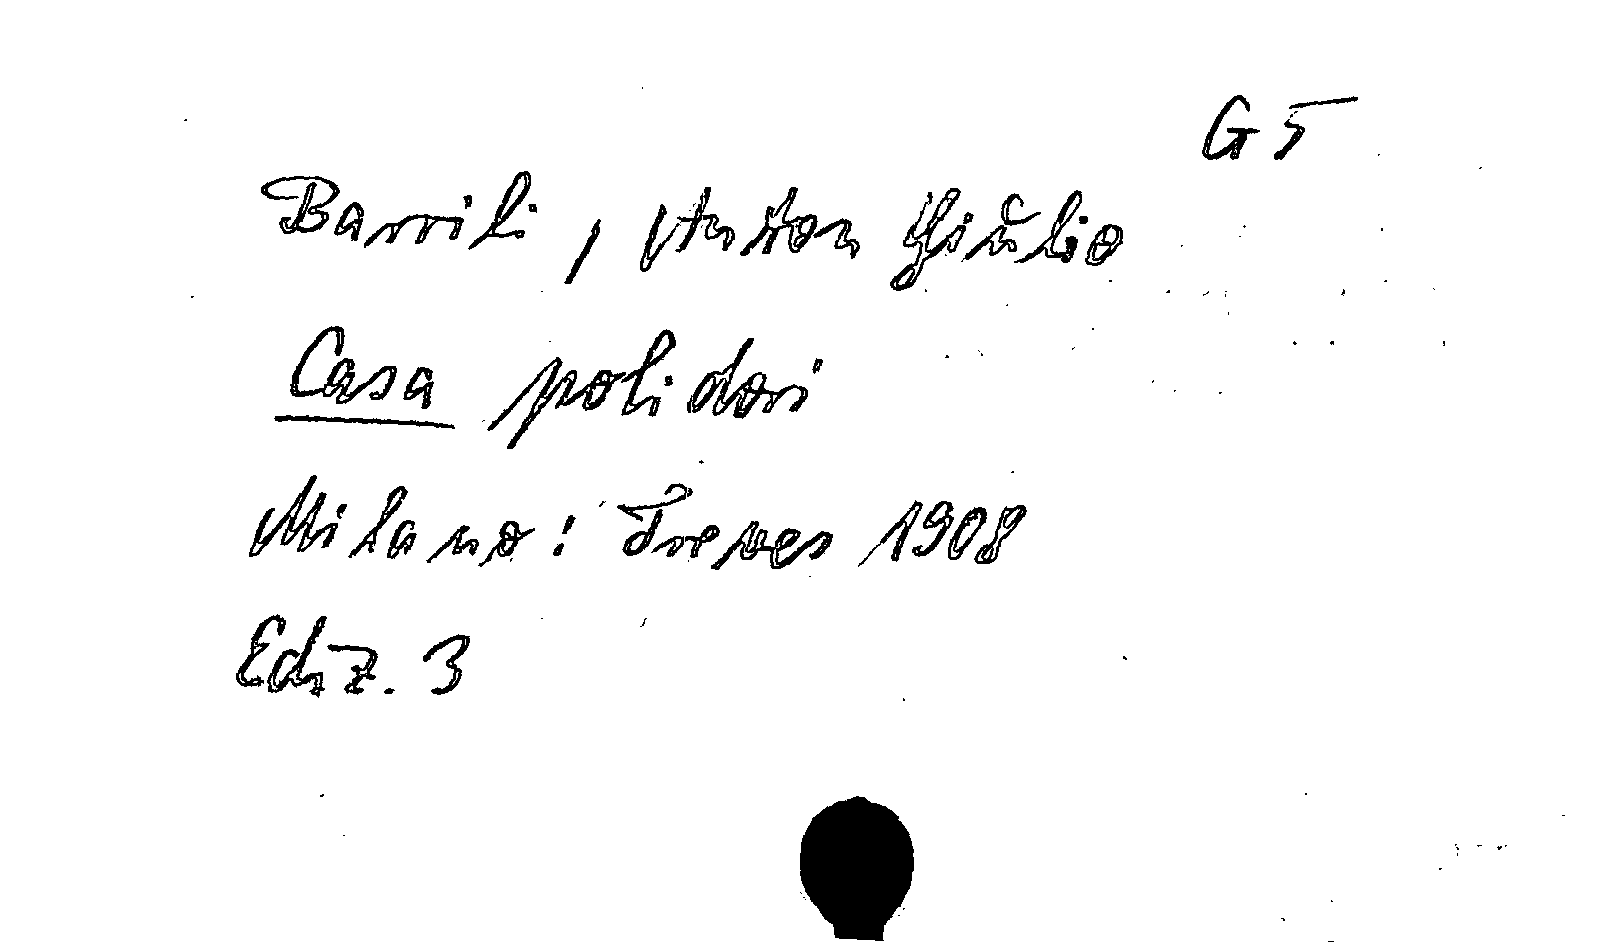 G 5
Barrili, Anton Giulio
Casa polidori
Milano: Treves 1908
Ediz. 3